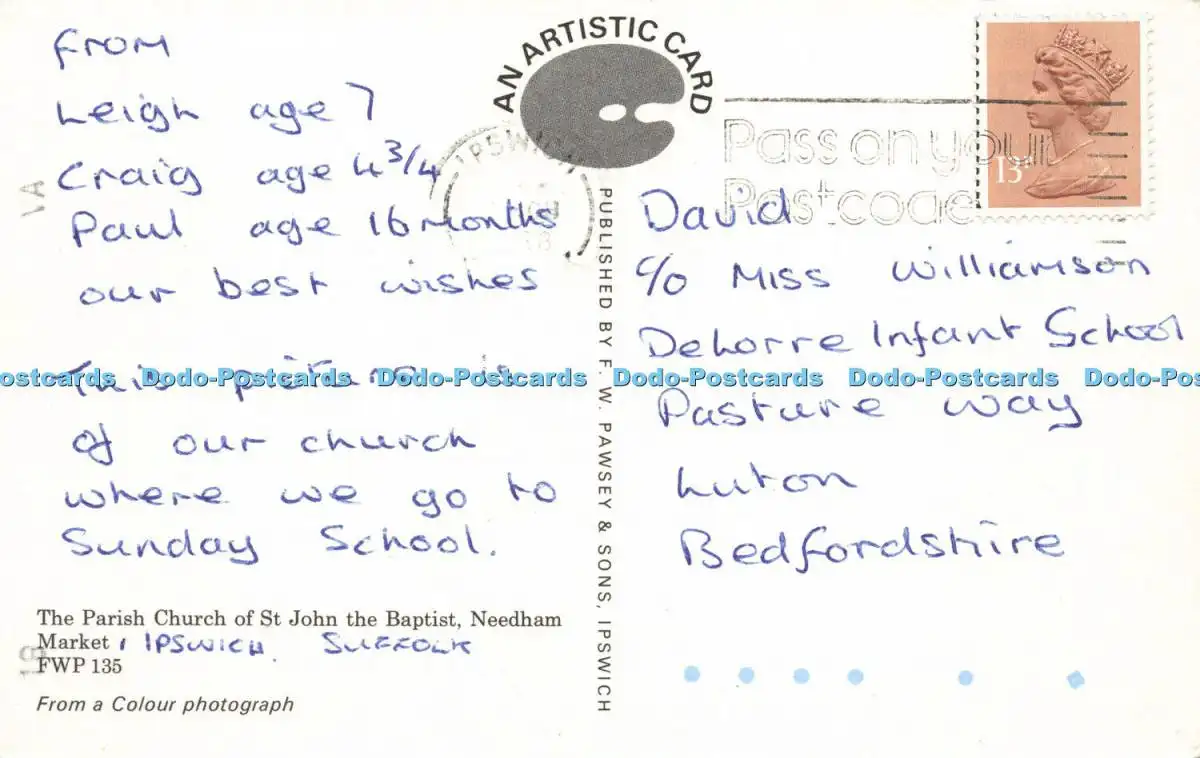 From
Leigh age 7
Craig age 4 3/4
Paul age 16 months
our best wishes
This picture is
of our church
where we go to
Sunday School.
The Parish Church of St John the Baptist, Needham
Market, IPSWICH. SUFFOLK
FWP 135
From a Colour photograph
AN ARTISTIC CARD
PUBLISHED BY F. W. PAWSEY & SONS, IPSWICH
IPSWICH
Pass on your
Postcode
13P
David
c/o Miss Williamson
Delorre Infant School
Pasture way
Luton
Bedfordshire
Dodo-Postcards Dodo-Postcards Dodo-Postcards Dodo-Postcards Dodo-Postcards